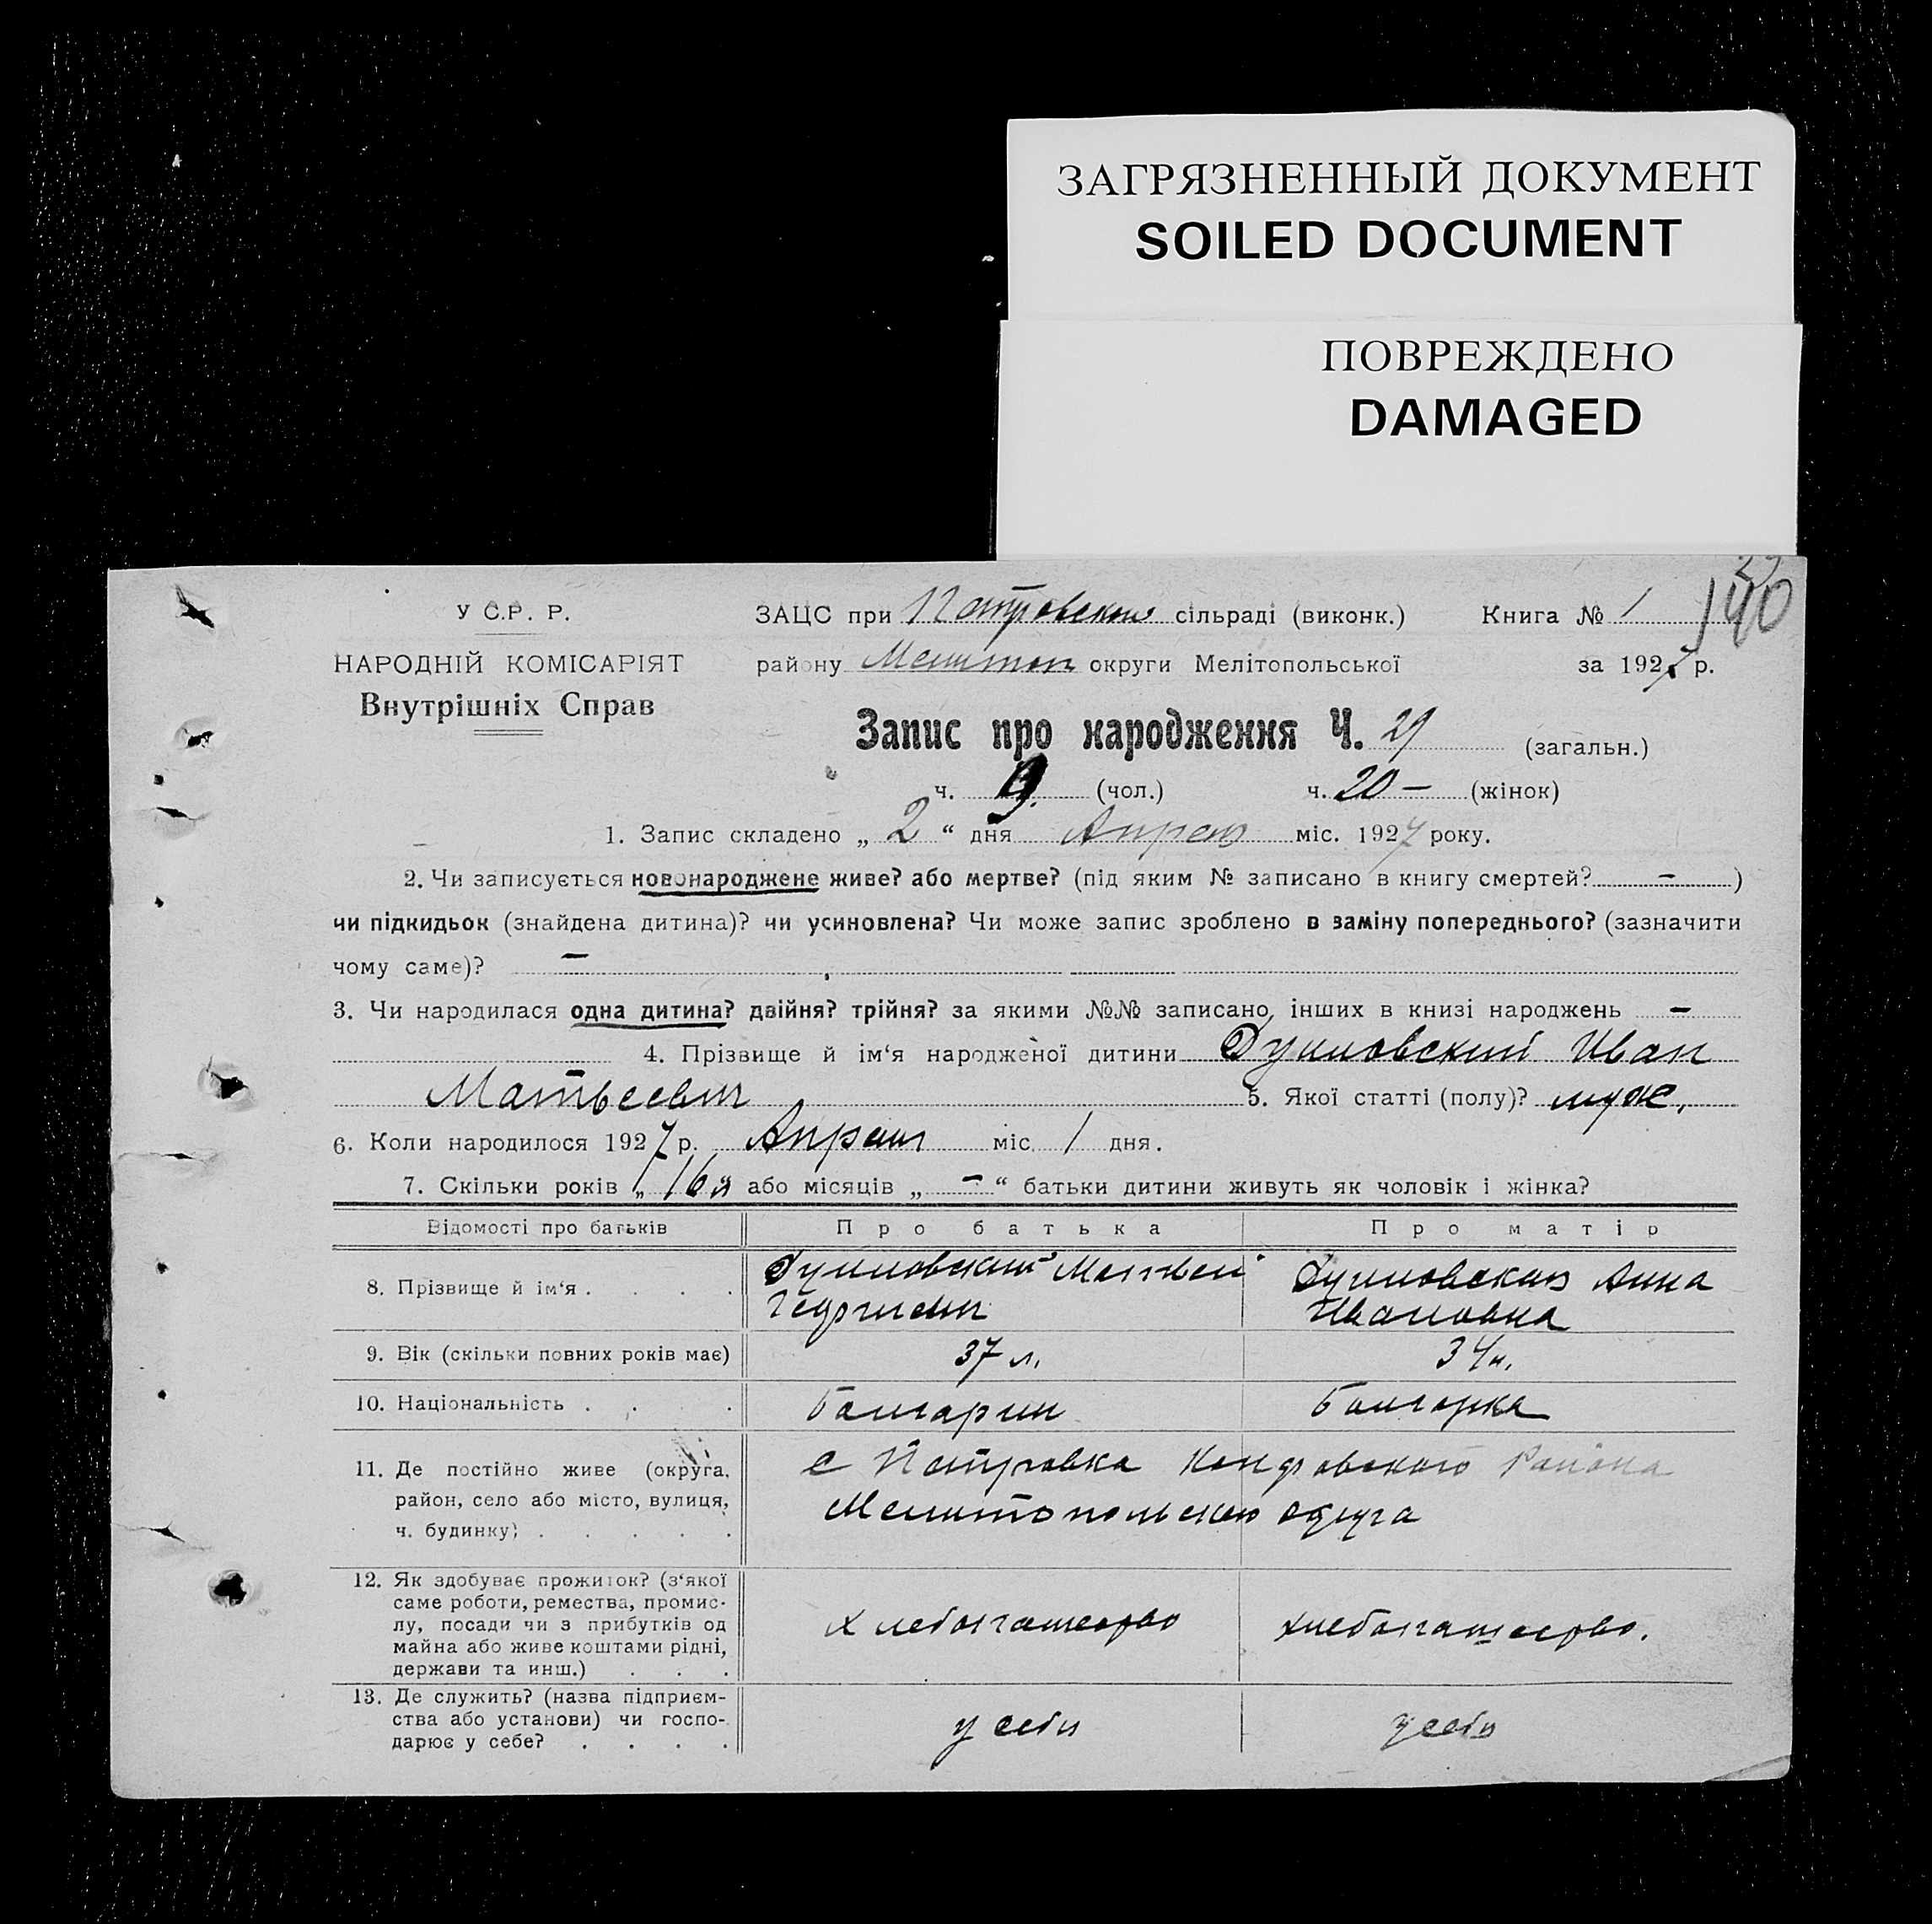 ЗАГРЯЗНЕННЫЙ ДОКУМЕНТ
SOILED DOCUMENT
ПОВРЕЖДЕНО
DAMAGED
140
У С.Р. Р.
НАРОДНІЙ КОМІСАРІЯТ
Внутрішніх Справ
ЗАЦС при Петровском сільраді (виконк.) Книга № 1
району Мелитоп округи Мелітопольської за 1927 р.
Запис про народження Ч. 29 (загальн.)
ч. 9 (чол.) ч. 20 — (жінок)
1. Запис складено „ 2 “ дня Апреля міс. 1927 року.
2. Чи записується новонароджене живе? або мертве? (під яким № записано в книгу смертей? — )
чи підкидьок (знайдена дитина)? чи усиновлена? Чи може запис зроблено в заміну попереднього? (зазначити
чому саме)? —
3. Чи народилася одна дитина? двійня? трійня? за якими №№ записано інших в книзі народжень —
4. Прізвище й ім‘я народженої дитини Дуиловский Иван
Матвеевич 5. Якої статті (полу)? муж.
6. Коли народилося 1927 р. Апреля міс. 1 дня.
7. Скільки років „ 16 “ або місяців „ — “ батьки дитини живуть як чоловік і жінка?
Відомості про батьків Про батька Про матір
8. Прізвище й ім‘я . . . . Матвей Георгиевич Анна Ивановна
9. Вік (скільки повних років має) 37 л. 34 л.
10. Національність . . . Болгарин Болгарка
11. Де постійно живе (округа, с Петровка Района
район, село або місто, вулиця, Мелитопольского округа
ч. будинку) . . . . .
12. Як здобуває прожиток? (з‘якої
саме роботи, ремества, промис-
лу, посади чи з прибутків од хлебопашество хлебопашество.
майна або живе коштами рідні,
держави та инш.) . . .
13. Де служить? (назва підприєм-
ства або установи) чи госпо- у себя у себя
дарює у себе? . . . .